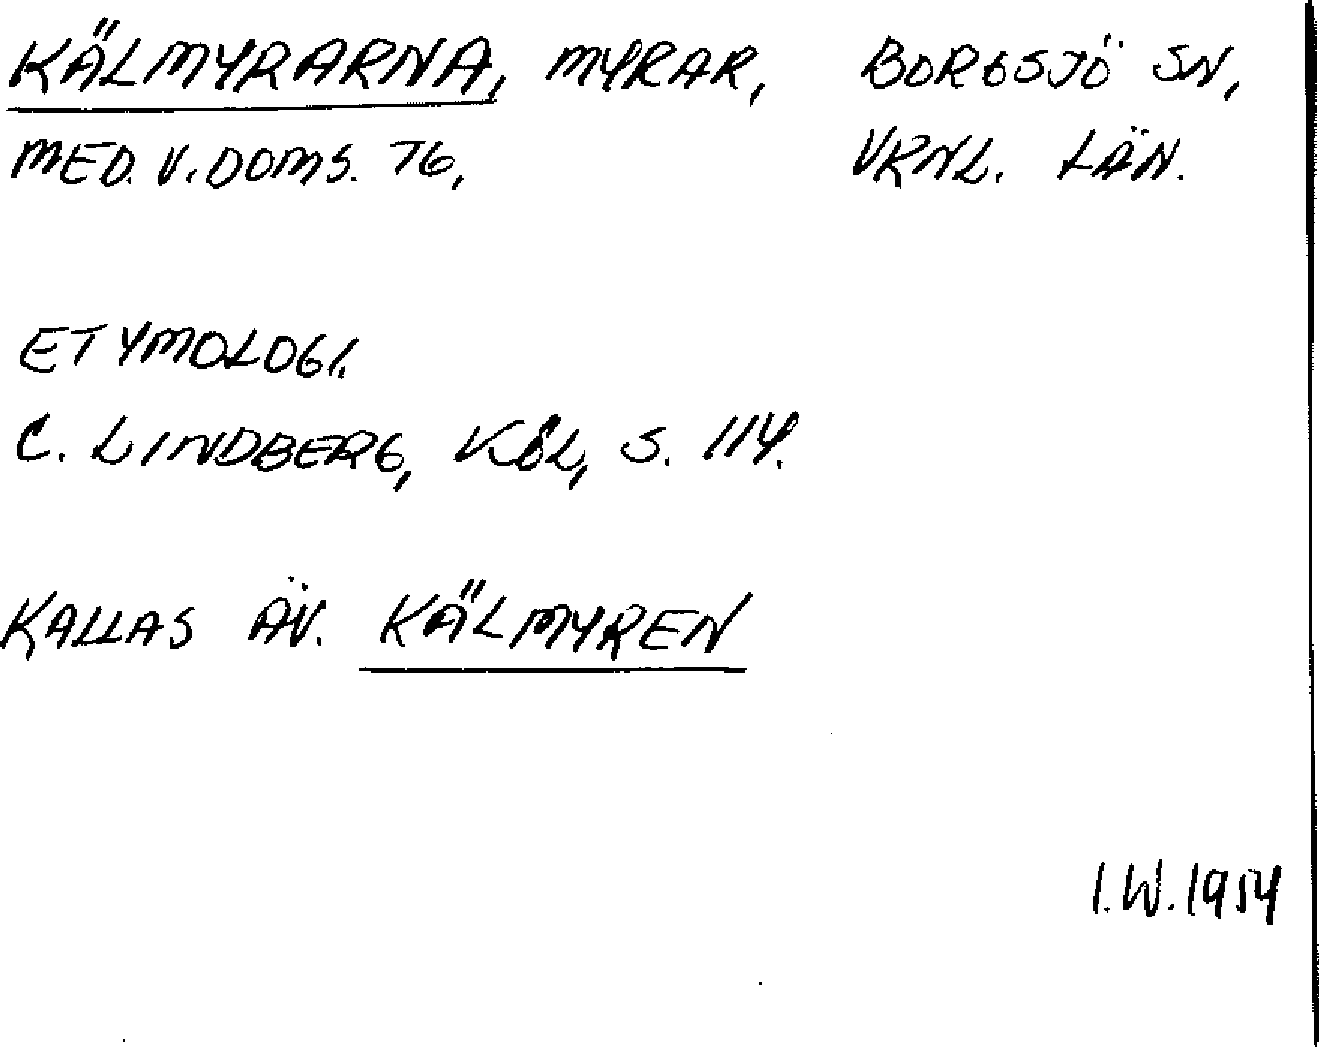 KÄLMYRARNA, MYRAR, BORGSJÖ SN,
MED. V. DOMS. 76, VRNL. LÄN.
ETYMOLOGI.
C. LINDBERG, KÖL, S. 114.
KALLAS ÄV. KÄLMYREN
I.W. 1954